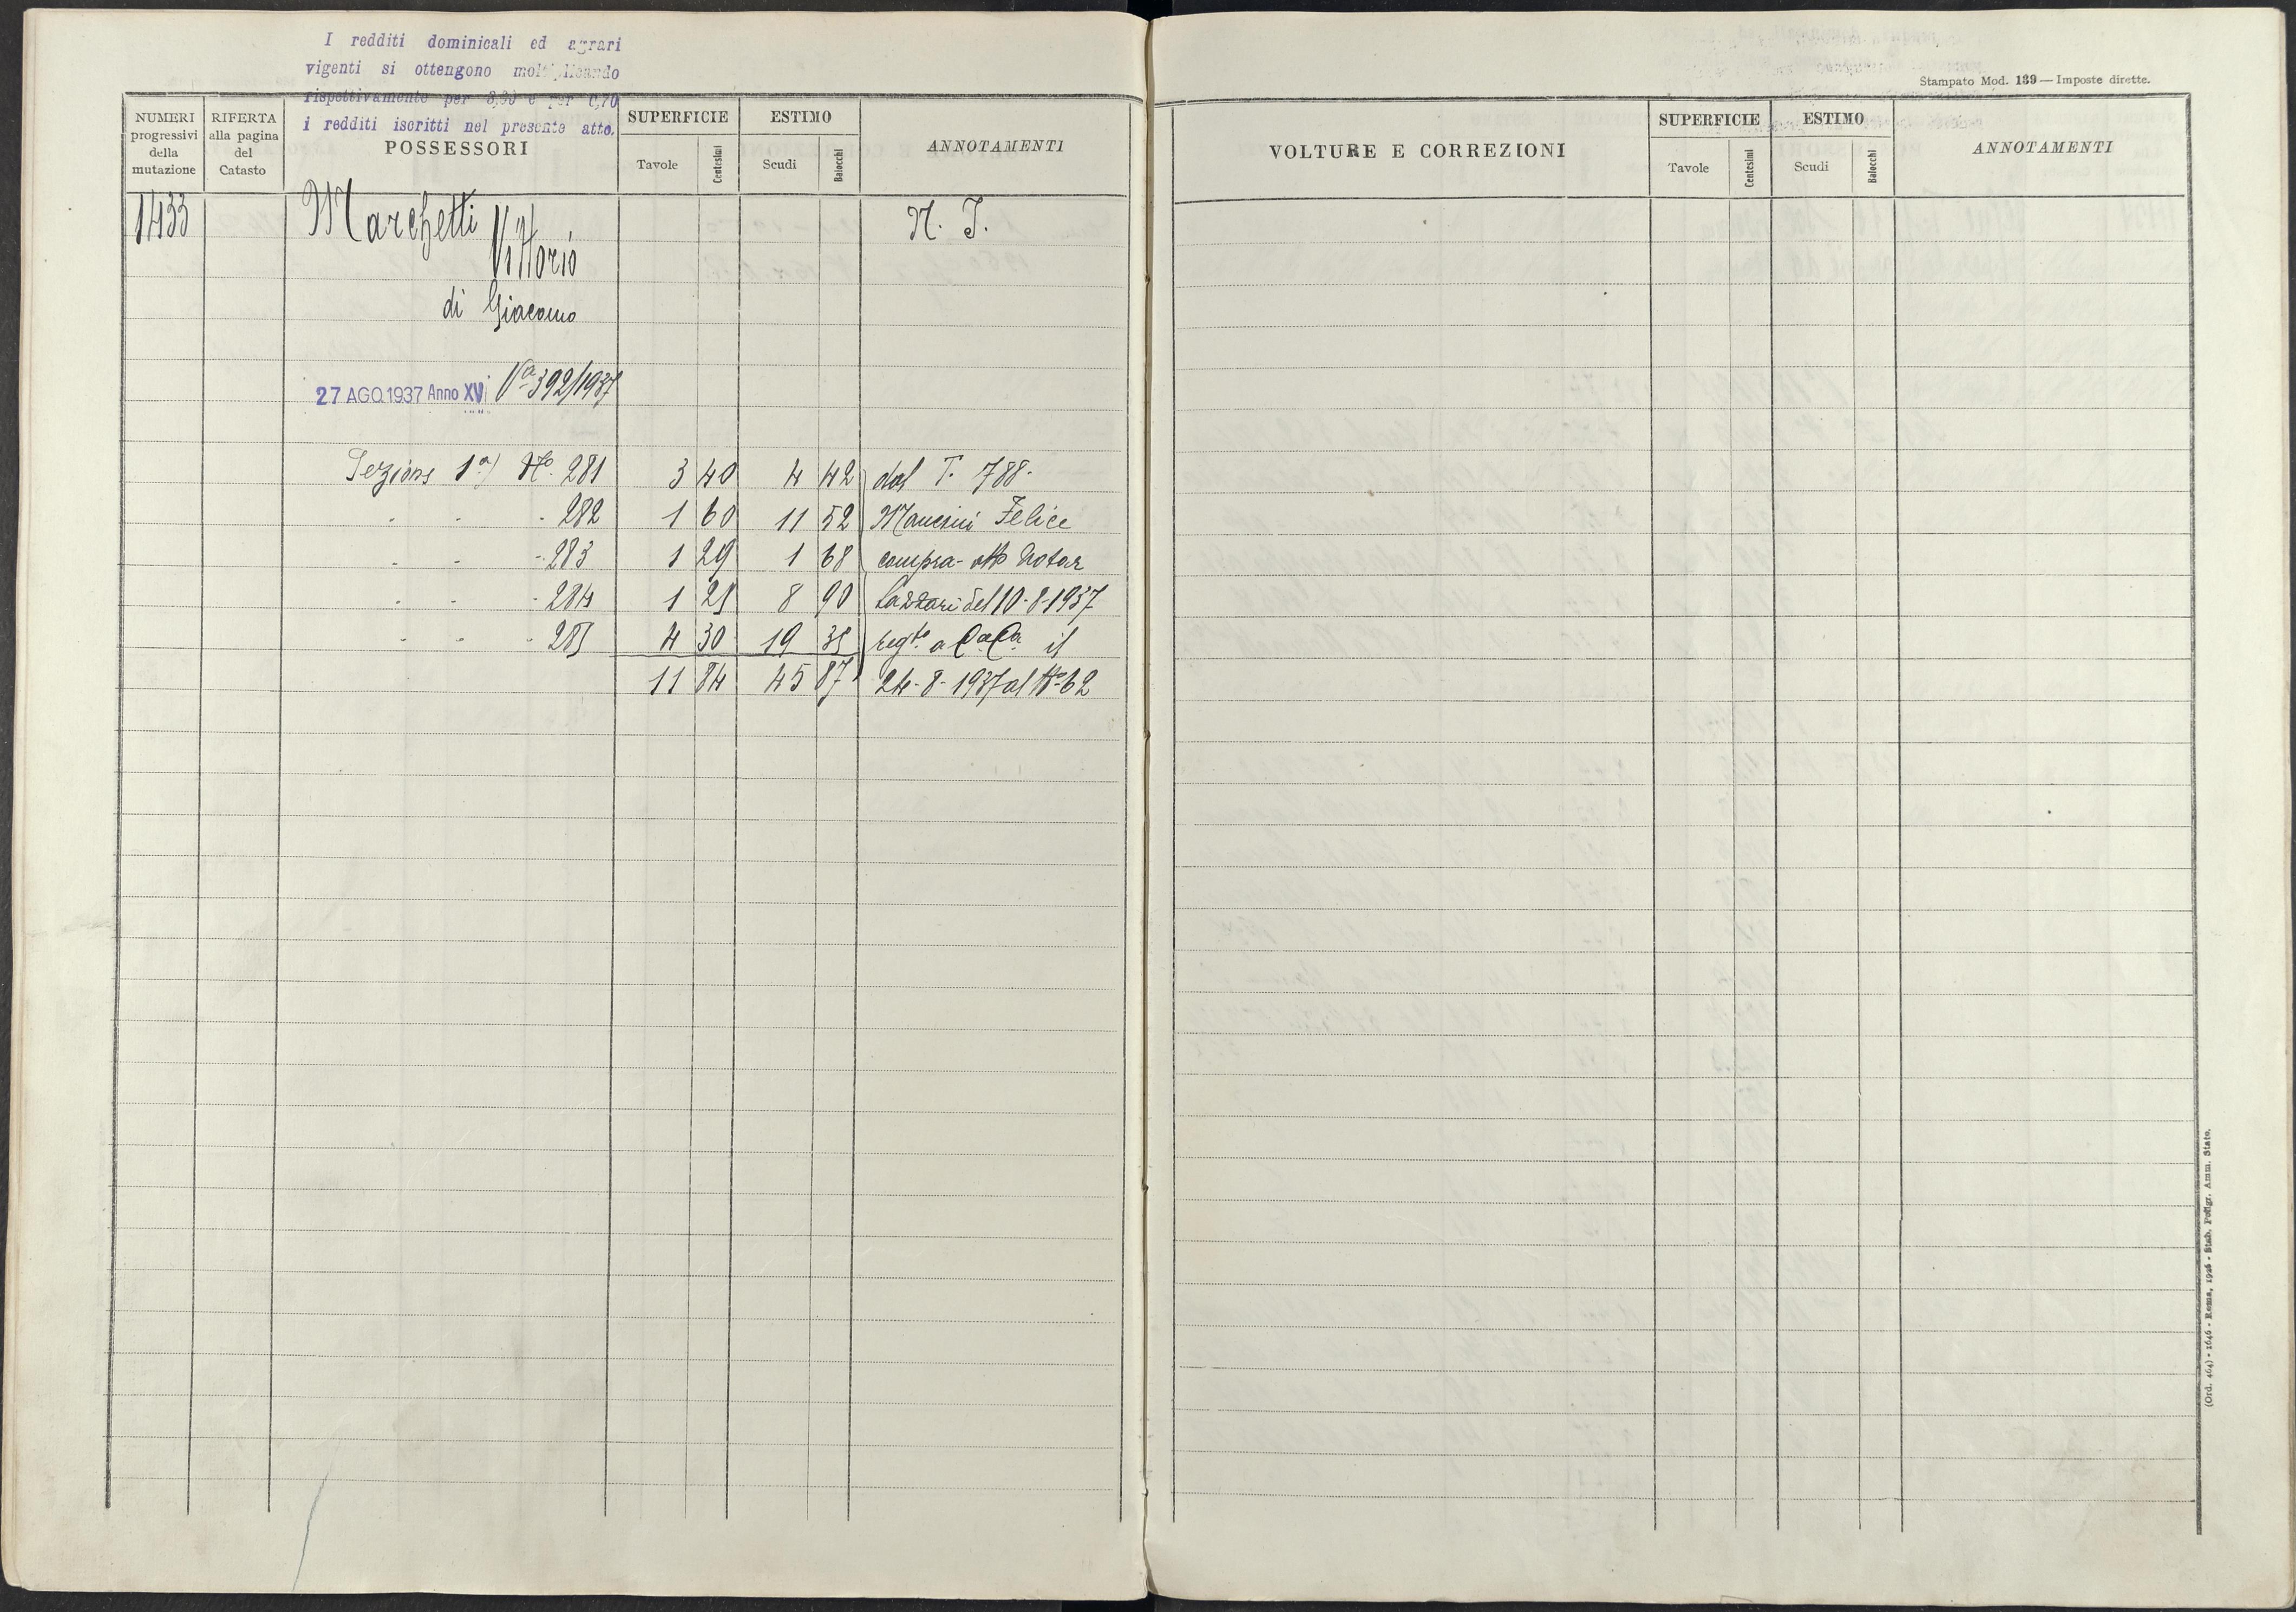 I redditi dominicali ed agrari
vigenti si ottengono moltiplicando
rispettivamente per 3,90 e per 0,70
i redditi iscritti nel presente atto.
Stampato Mod. 139 — Imposte dirette.
NUMERI progressivi della mutazione
RIFERTA alla pagina del Catasto
POSSESSORI
SUPERFICIE
Tavole
Centesimi
ESTIMO
Scudi
Baiocchi
ANNOTAMENTI
VOLTURE E CORREZIONI
SUPERFICIE
Tavole
Centesimi
ESTIMO
Scudi
Baiocchi
ANNOTAMENTI
1433 Marchetti N. I.
Vittorio
di Giacomo
27 AGO. 1937 Anno XV Va 392/1937
Sezione 1a) No. 281 3 40 4 42 dal T. 788.
" " " 282 1 60 11 52 Mancini Felice
" " " 283 1 29 1 68 compra- atto Notar
" " " 284 1 25 8 90 Lazzari del 10-8-1937
" " " 285 4 30 19 35 regto a il
11 84 45 87 24-8-1937 al No 62
(Ord. 464) - 1646 - Roma, 1926 - Stab. Poligr. Amm. Stato.